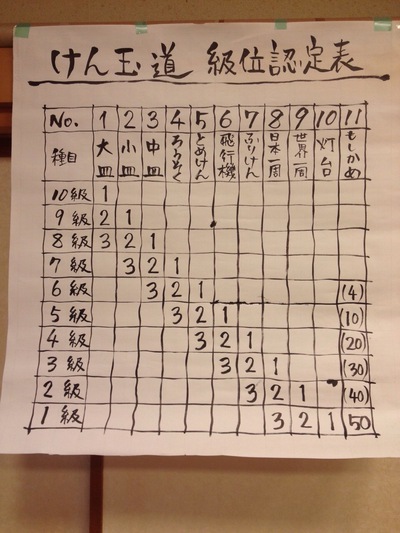 けん玉道 級位認定表
No. 1 2 3 4 5 6 7 8 9 10 11
種目 大皿 小皿 中皿 ろうそく とめけん 飛行機 ふりけん 日本一周 世界一周 灯台 もしかめ
10級 1
9級 2 1
8級 3 2 1
7級 3 2 1
6級 3 2 1 (4)
5級 3 2 1 (10)
4級 3 2 1 (20)
3級 3 2 1 (30)
2級 3 2 1 (40)
1級 3 2 1 50